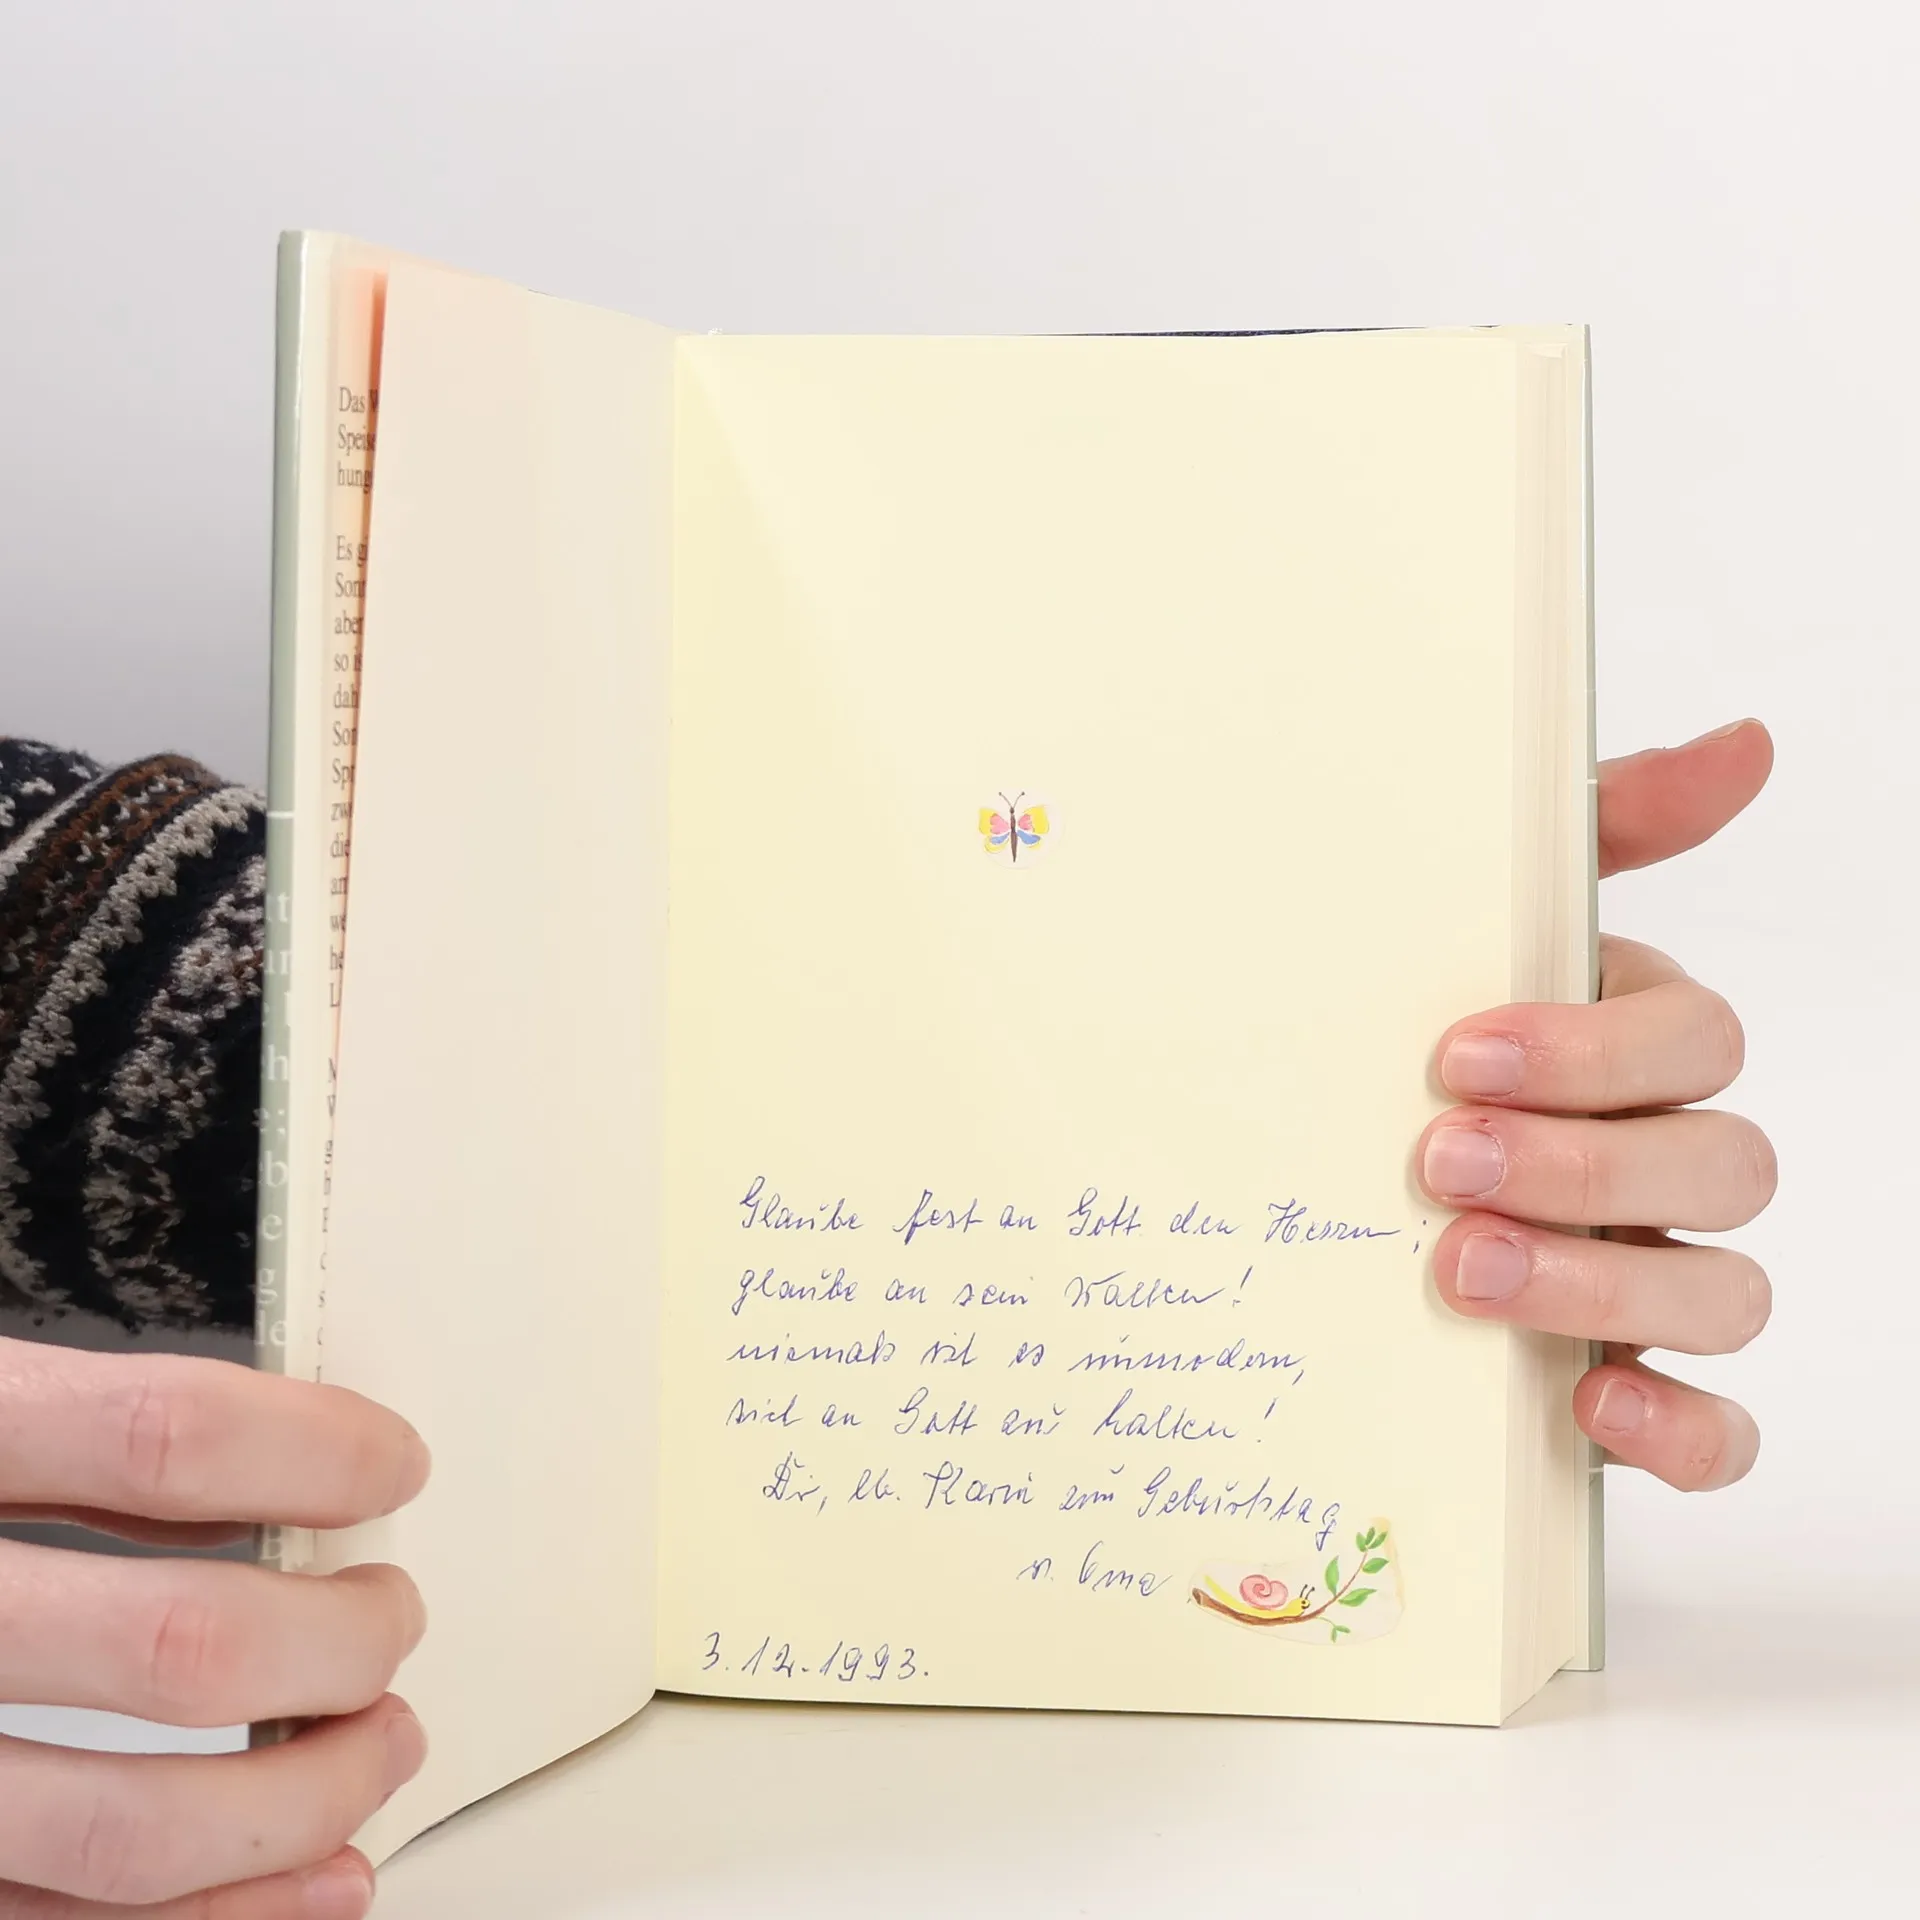 Das
Speise
hung
Es gi
Son
aber
so is
dah
Son
Spr
zw
die
an
we
he
L
Glaube fest an Gott den Herrn;
glaube an sein Walten!
niemals ist es unmodern,
sich an Gott zu halten!
Dir, lb. Karin zum Geburtstag
v. Oma
3.12.1993.